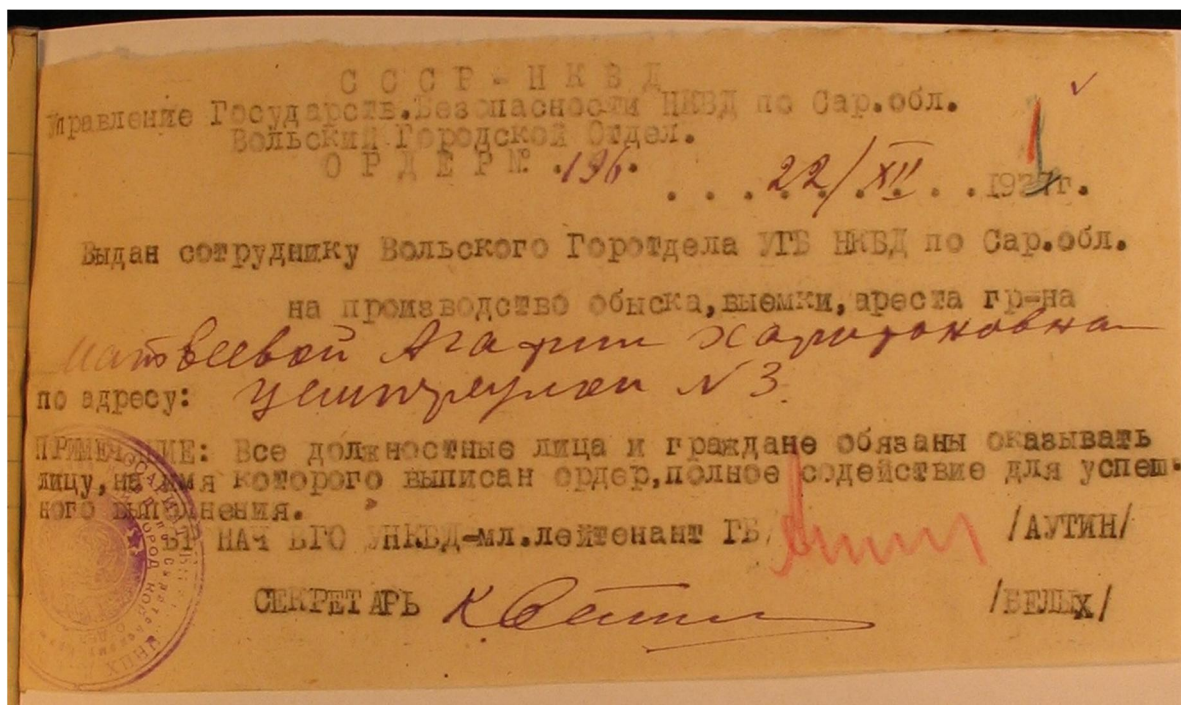 СССР-НКВД
Управление Государств.Безопасности НКВД по Сар.обл.
Вольский Городской Отдел.
ОРДЕР № .196.
. . . 22/XII . . 193 г.
Выдан сотруднику Вольского Горотдела УГБ НКВД по Сар.обл.
на производство обыска,выемки,ареста гр-на
Матвеевой Агафии Харитоновна
по адресу: № 3.
ПРИМЕЧАНИЕ: Все должностные лица и граждане обязаны оказывать
лицу,на имя которого выписан ордер,полное содействие для успеш-
ного выполнения.
ВР НАЧ ВГО УНКВД-мл.лейтенант ГБ/ /АУТИН/
СЕКРЕТАРЬ /БЕЛЫХ/